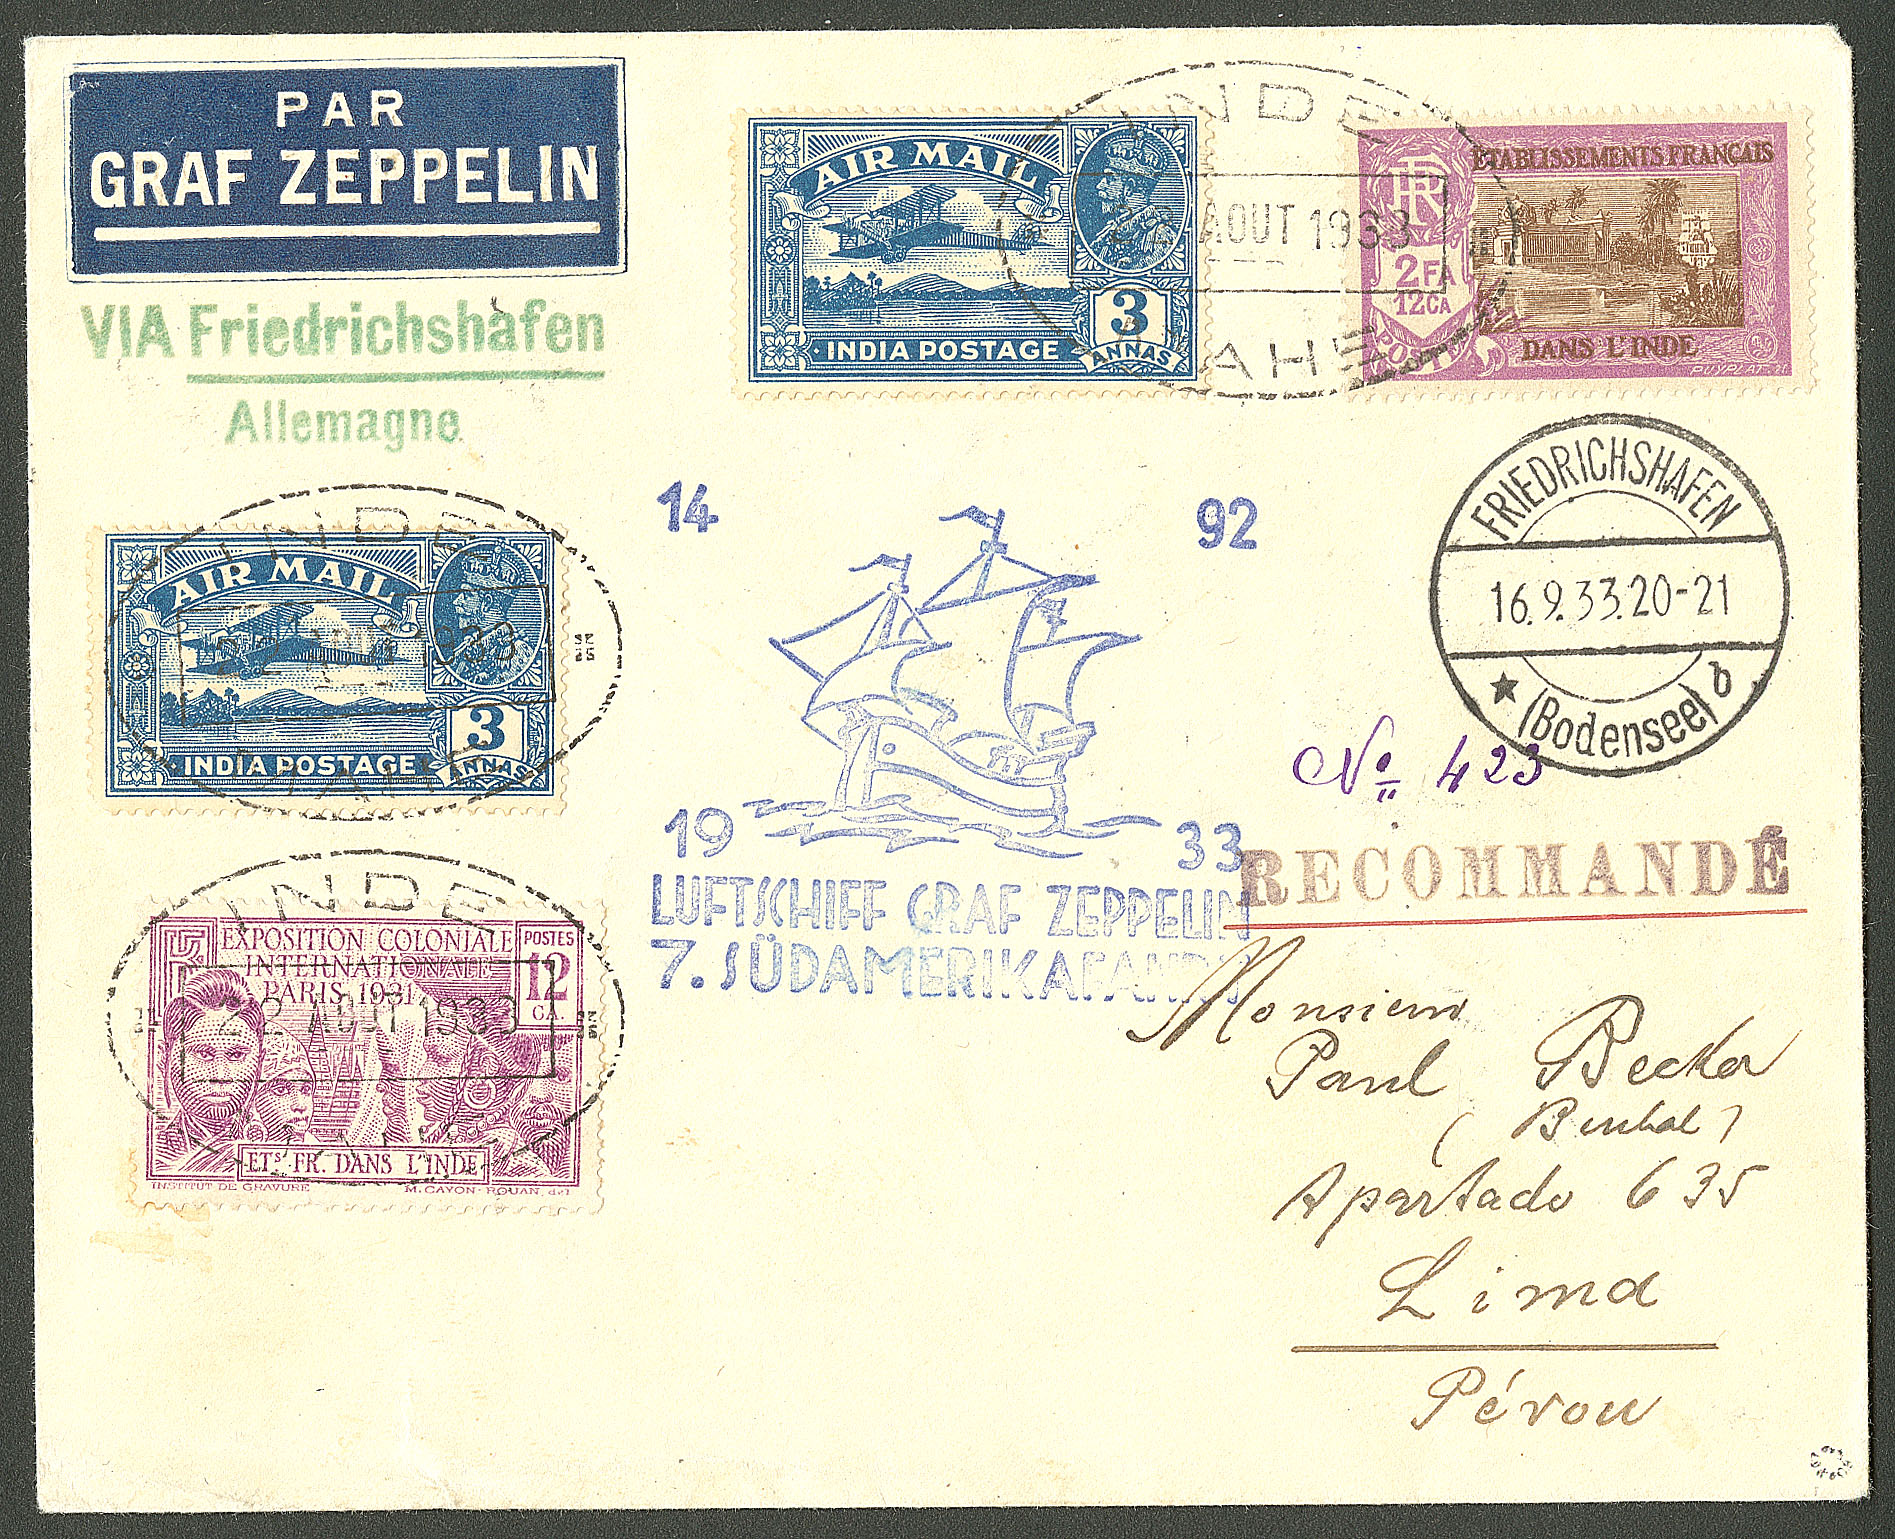 PAR
GRAF ZEPPELIN
VIA Friedrichshafen
Allemagne
AIR MAIL
3
INDIA POSTAGE ANNAS
INDE
AOUT 1933
MAHE
RF
ETABLISSEMENTS FRANÇAIS
2FA
12CA
POSTES
DANS L'INDE
PUYPLAT
FRIEDRICHSHAFEN
16.9.33.20-21
(Bodensee) b
14 92
19 33
LUFTSCHIFF GRAF ZEPPELIN
7. SÜDAMERIKAFAHRT
No 423
RECOMMANDÉ
INDE
AIR MAIL
1933
3
INDIA POSTAGE ANNAS
INDE
RF
EXPOSITION COLONIALE
INTERNATIONALE
PARIS 1931
POSTES
12
CA.
22 AOUT 1933
ETS FR. DANS L'INDE
INSTITUT DE GRAVURE M. CAYON-ROUAN, del
Monsieur
Paul Becker
Apartado 635
Lima
Pérou